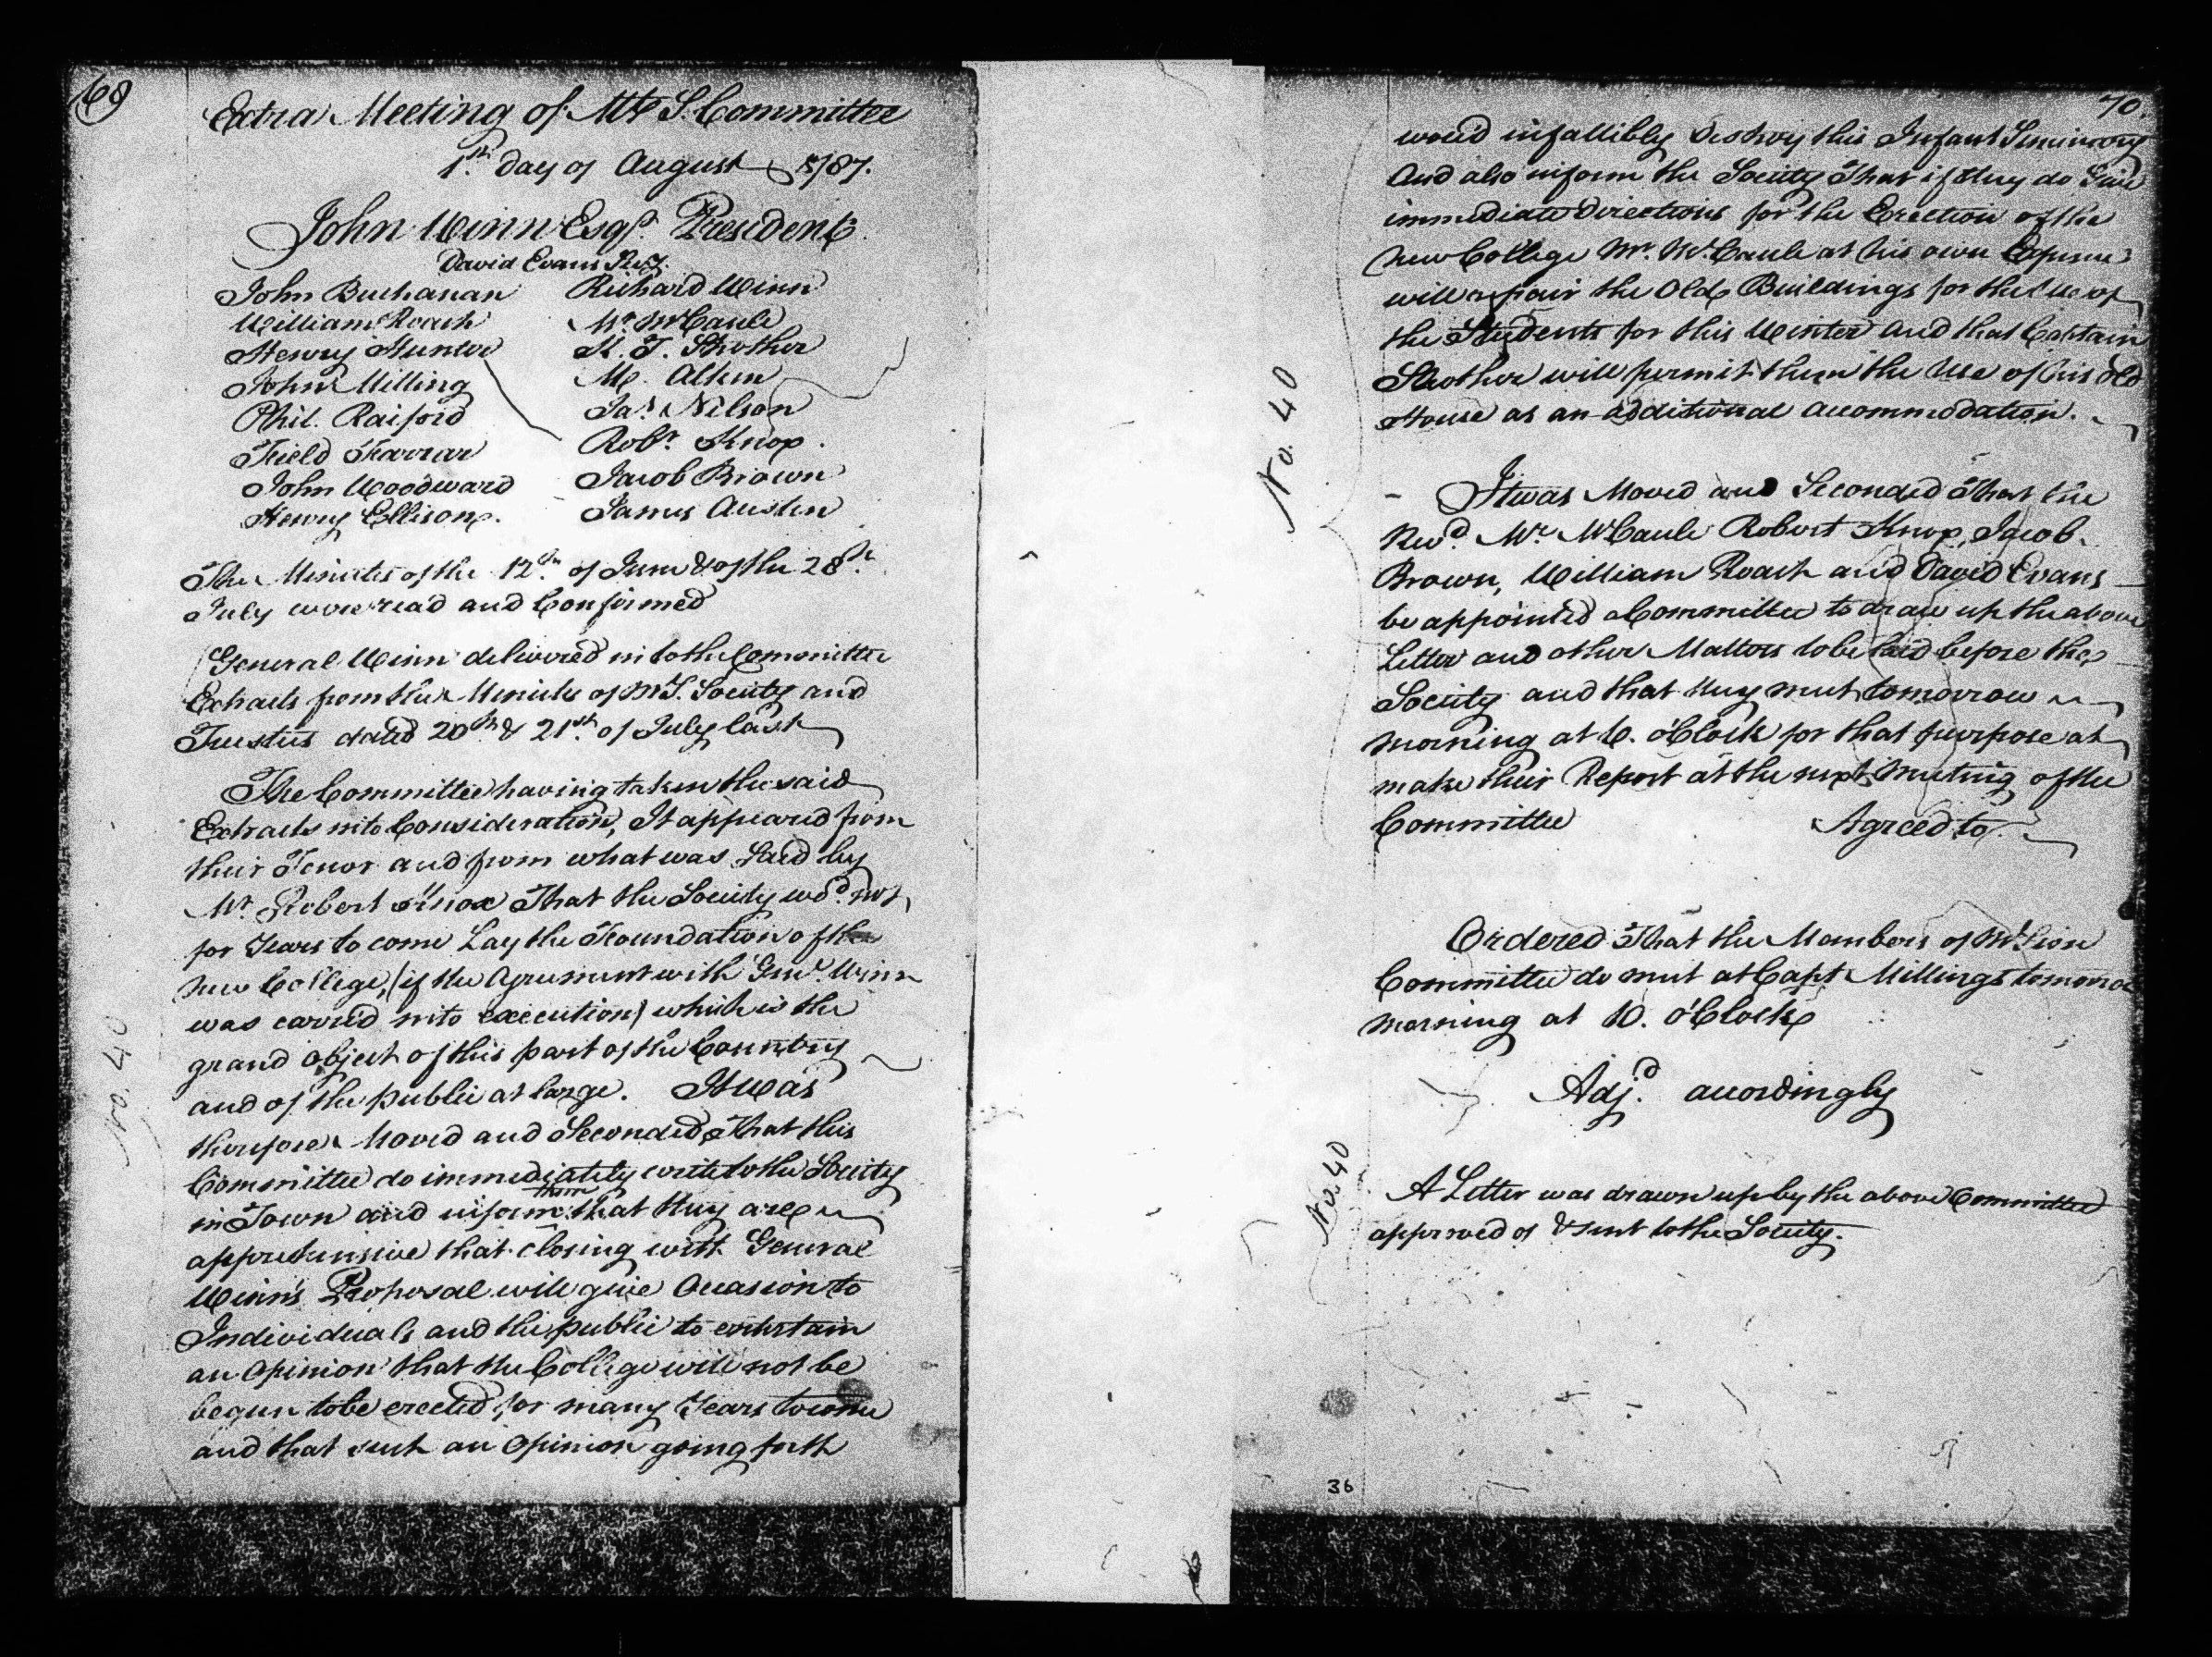 69
Extra Meeting of Mt S. Committee
1st. Day of August 1787.
John Winn Esqr. President
David Evans Secy.
John Buchanan Richard Winn
William Roach Mr McCaule
Henry Hunter K. T. Strother
John Milling Mc. Alken
Phil. Raiford Jas. Nelson
Field Farrar Robt. Knox.
John Woodward Jacob Brown
Henry Ellison. James Austin
The Minutes of the 12th. of June & of the 28th.
July were read and Confirmed
General Winn delivered in to the Committee
Extracts from the Minutes of Mt S. Society and
Trustees dated 20th & 21st. of July last
The Committee having taken the said
Extracts into Consideration, It appeared from
their Tenor and from what was Said by
Mr. Robert Knox That the Society wod. not
for Years to come Lay the Foundation of the
new College, (if the Agreement with Genl. Winn
was carried into execution) which is the
grand object of this part of the Country
and of the public at large. It was
therefore Moved and Seconded, That this
Committee do immediately write to the Society
in Town and inform them that they are
apprehensive that closing with General
Winn's Proposal will give Occasion to
Individuals and the public to entertain
an Opinion that the College will not be
begun to be erected for many Years to come
and that such an Opinion going forth
No. 40
70.
would infallibly Destroy this Infant Seminary
And also inform the Society That if they do Give
immediate Directions for the Erection of the
new College Mr. McCaule at his own Expence
will repair the Old Buildings for the Use of
the Students for this Winter and that Captain
Strother will permit them the Use of his old
House as an additional accommodation.
No. 40
It was Moved and Seconded That the
Revd. Mr. McCaule Robert Knox, Jacob
Brown, William Roach and David Evans
be appointed a Committee to draw up the above
Letter and other Matters to be laid before the
Society and that they meet tomorrow
morning at 6. o'Clock for that purpose at
make their Report at the next Meeting of the
Committee Agreed to.
Ordered That the Members of Mt Sion
Committee do meet at Capt Millings tomorrow
morning at 10. o'Clock
Adjd. accordingly
No. 40
A Letter was drawn up by the above Committee
approved of & sent to the Society.
36